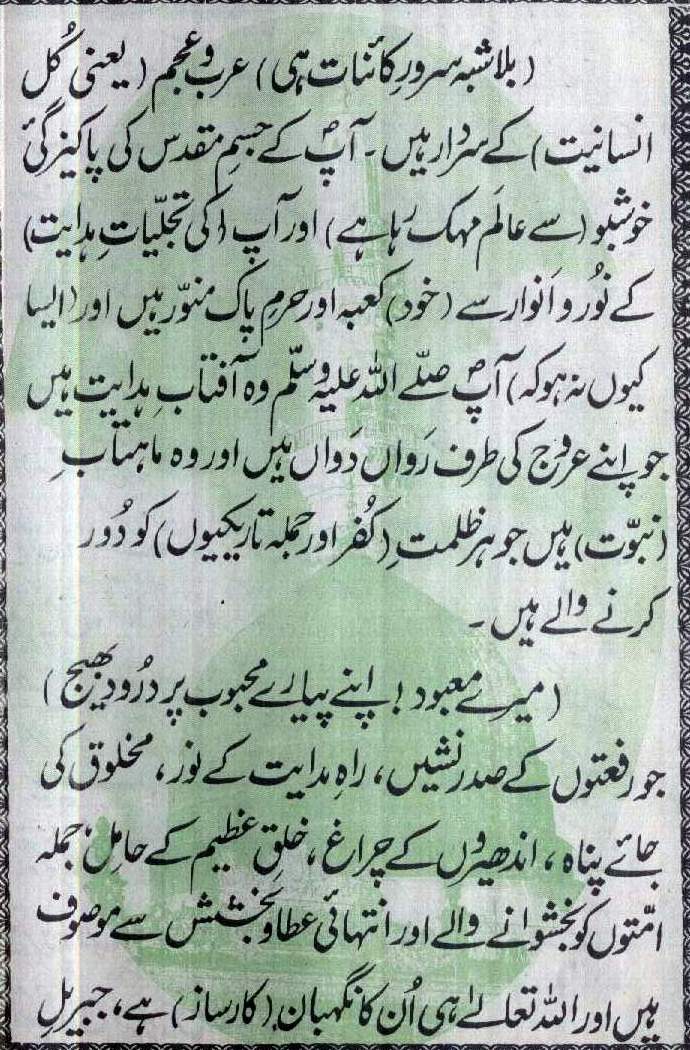 (بلاشبہ سرورِ کائنات ہی) عرب و عجم (یعنی کُل
انسانیت) کے سردار ہیں۔ آپؐ کے جسمِ مقدس کی پاکیزگی
خوشبو (سے عالَم مہک رہا ہے) اور آپ (کی تجلّیاتِ ہدایت)
کے نُور و اَنوار سے (خود) کعبہ اور حرمِ پاک منوّر ہیں اور (ایسا
کیوں نہ ہو کہ) آپؐ صلّے اللہ علیہ وسلّم وہ آفتابِ ہدایت ہیں
جو اپنے عروج کی طرف رَواں دَواں ہیں اور وہ ماہتابِ
(نبوّت) ہیں جو ہر ظلمتِ (کُفر اور جملہ تاریکیوں) کو دُور
کرنے والے ہیں۔
(میرے معبود! اپنے پیارے محبوب پر درُود بھیج)
جو رفعتوں کے صدر نشیں، راہِ ہدایت کے نور، مخلوق کی
جائے پناہ، اندھیروں کے چراغ، خلقِ عظیم کے حامل، جملہ
امّتوں کو بخشوانے والے اور انتہائی عطا و بخشش سے موصوف
ہیں اور اللہ تعالےٰ ہی اُن کا نگہبان (کارساز) ہے، جبریلِ